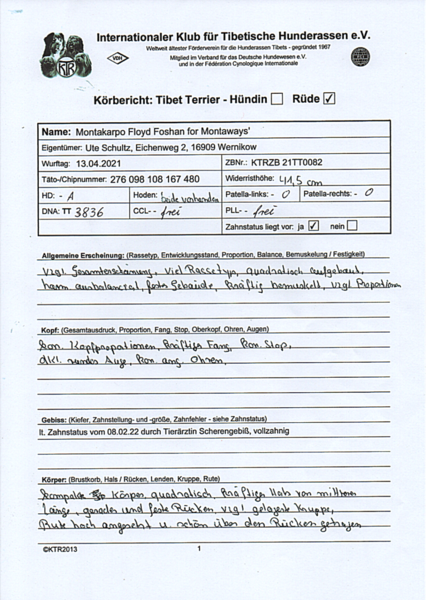 Internationaler Klub für Tibetische Hunderassen e.V.
Weltweit ältester Förderverein für die Hunderassen Tibets - gegründet 1967
Mitglied im Verband für das Deutsche Hundewesen e.V.
und in der Fédération Cynologique Internationale
KTR
VDH
Körbericht: Tibet Terrier - Hündin ☐ Rüde ☑
Name: Montakarpo Floyd Foshan for Montaways'
Eigentümer: Ute Schultz, Eichenweg 2, 16909 Wernikow
Wurftag: 13.04.2021 ZBNr.: KTRZB 21TT0082
Täto-/Chipnummer: 276 098 108 167 480 Widerristhöhe: 41,5 cm
HD: - A Hoden: beide vorhanden Patella-links: - 0 Patella-rechts: - 0
DNA: TT 3836 CCL-- frei PLL-- frei
Zahnstatus liegt vor: ja ☑ nein ☐
Allgemeine Erscheinung: (Rassetyp, Entwicklungsstand, Proportion, Balance, Bemuskelung / Festigkeit)
vzgl. Gesamterscheinung, viel Rassetyp, quadratisch aufgebaut,
harm. ausbalanciert, feste Gebäude, kräftig bemuskelt, vzgl. Proportionen
Kopf: (Gesamtausdruck, Proportion, Fang, Stop, Oberkopf, Ohren, Augen)
kor. Kopfpropationen, kräftiger Fang, kor. Stop,
dkl. rundes Auge, kor. ang. Ohren,
Gebiss: (Kiefer, Zahnstellung- und -größe, Zahnfehler - siehe Zahnstatus)
lt. Zahnstatus vom 08.02.22 durch Tierärztin Scherengebiß, vollzahnig
Körper: (Brustkorb, Hals / Rücken, Lenden, Kruppe, Rute)
kompakte Körper, quadratisch, kräftiger Hals von mittlerer
Länge, gerader und feste Rücken, vzgl. gelagerte Kruppe,
Rute hoch angesetzt u. schön über den Rücken getragen
©KTR2013 1